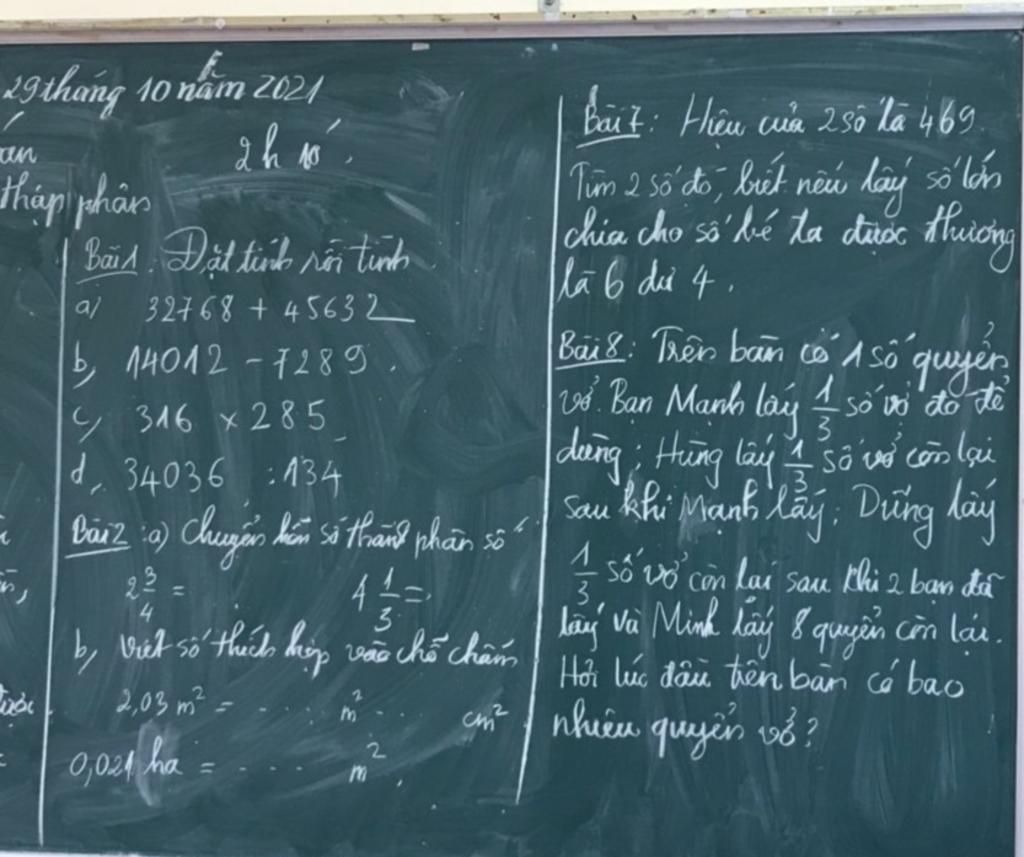 29 tháng 10 năm 2021
2h 10'.
thập phân
Bài 1. Đặt tính rồi tính
a) 32768 + 45632
b, 14012 - 7289.
c, 316 × 285
d, 34036 : 134
Bài 2: a) Chuyển hỗn số thành phân số
2 3/4 = 4 1/3 =
b, Viết số thích hợp vào chỗ chấm
2,03 m² = .... m² .. cm²
0,021 ha = .... m².
Bài 7: Hiệu của 2 số là 469.
Tìm 2 số đó, biết nếu lấy số lớn
chia cho số bé ta được thương
là 6 dư 4.
Bài 8: Trên bàn có 1 số quyển
vở. Bạn Mạnh lấy 1/3 số vở đó để
dùng; Hùng lấy 1/3 số vở còn lại
sau khi Mạnh lấy; Dũng lấy
1/3 số vở còn lại sau khi 2 bạn đã
lấy và Minh lấy 8 quyển còn lại.
Hỏi lúc đầu trên bàn có bao
nhiêu quyển vở?